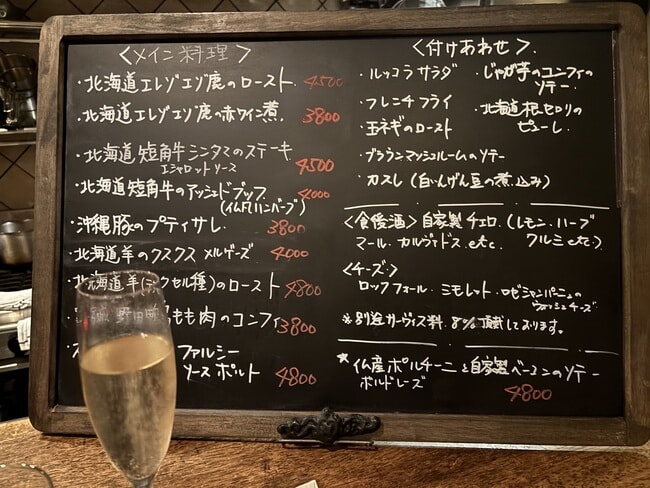 <メイン料理>
・北海道エレゾエゾ鹿のロースト 4500
・北海道エレゾエゾ鹿の赤ワイン煮 3800
・北海道短角牛シンタマのステーキ
エシャロットソース 4500
・北海道短角牛のアッシェドブッフ 4000
(仏風ハンバーグ)
・沖縄豚のプティサレ 3800
・北海道羊のクスクス メルゲーズ 4000
北海道羊( クセル種)のロースト 4800
野田鴨もも肉のコンフィ 3800
ファルシー
ソースポルト 4800
<付けあわせ>
・ルッコラサラダ
・フレンチフライ
・玉ネギのロースト
・ブラウンマッシュルームのソテー
・カスレ(白いんげん豆の煮込み)
・じゃが芋のコンフィの
ソテー
・北海道根セロリの
ピューレ
<食後酒>自家製チェロ.(レモン.ハーブ
マール.カルヴァドス.etc. クルミetc)
<チーズ>
ロックフォール.ミモレット.ロゼシャンパーニュの
ウォッシュチーズ
※別途サーヴィス料.8%頂戴しております。
★仏産ポルチーニと自家製ベーコンのソテー
ボルドレーズ 4800